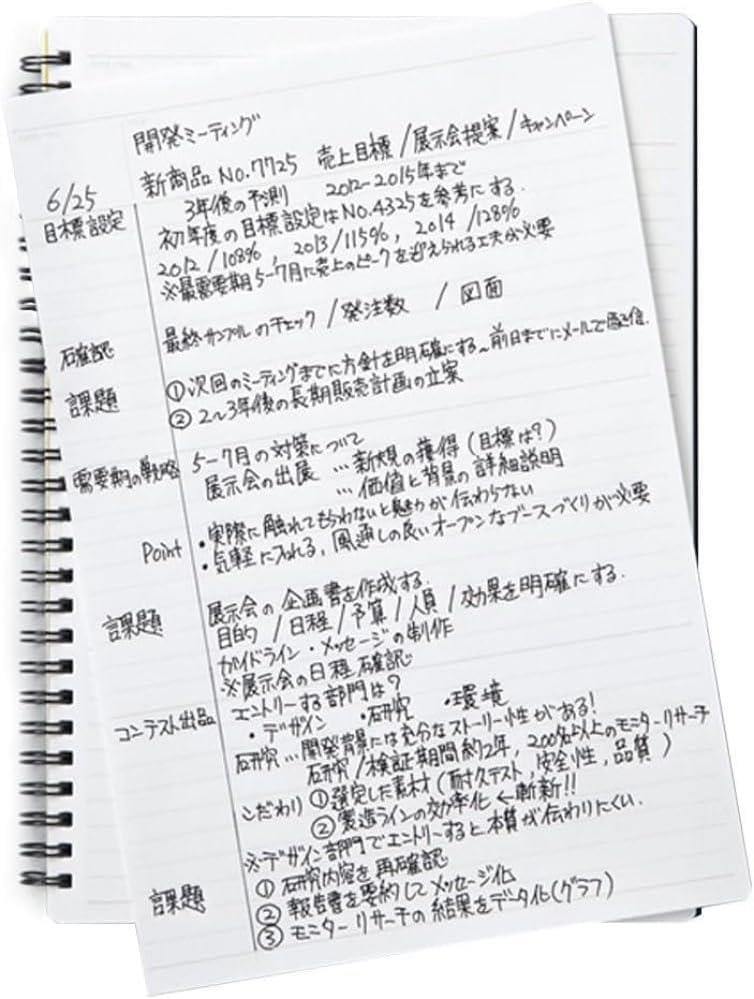 開発ミーティング
6/25 新商品 No.7725 売上目標/展示会提案/キャンペーン
目標設定 3年後の予測 2012-2015年まで
初年度の目標設定はNo.4325を参考にする.
2012/108%, 2013/115%, 2014/128%
※最需要期5-7月に売上のピークを迎えられる工夫が必要
確認 最終サンプルのチェック/発注数 / 図面
課題 ①次回のミーティングまでに方針を明確にする~前日までにメールで配信.
②2~3年後の長期販売計画の立案
需要期の戦略 5-7月の対策について
展示会の出展 …新規の獲得(目標は?)
…価値と背景の詳細説明
Point ・実際に触れてもらわないと魅力が伝わらない
・気軽に入れる、風通しの良いオープンなブースづくりが必要
課題 展示会の企画書を作成する.
目的 /日程/予算/人員/効果を明確にする.
ガイドライン・メッセージの制作
※展示会の日程確認
コンテスト出品 エントリーする部門は?
・デザイン ・研究 ・環境
研究…開発背景には充分なストーリー性がある!
研究/検証期間約2年, 200名以上のモニターリサーチ
こだわり ①選定した素材(耐久テスト,安全性,品質)
②製造ラインの効率化←斬新!!
※デザイン部門でエントリーすると本質が伝わりにくい.
課題 ①研究内容を再確認
②報告書を要約してメッセージ化
③モニターリサーチの結果をデータ化(グラフ)